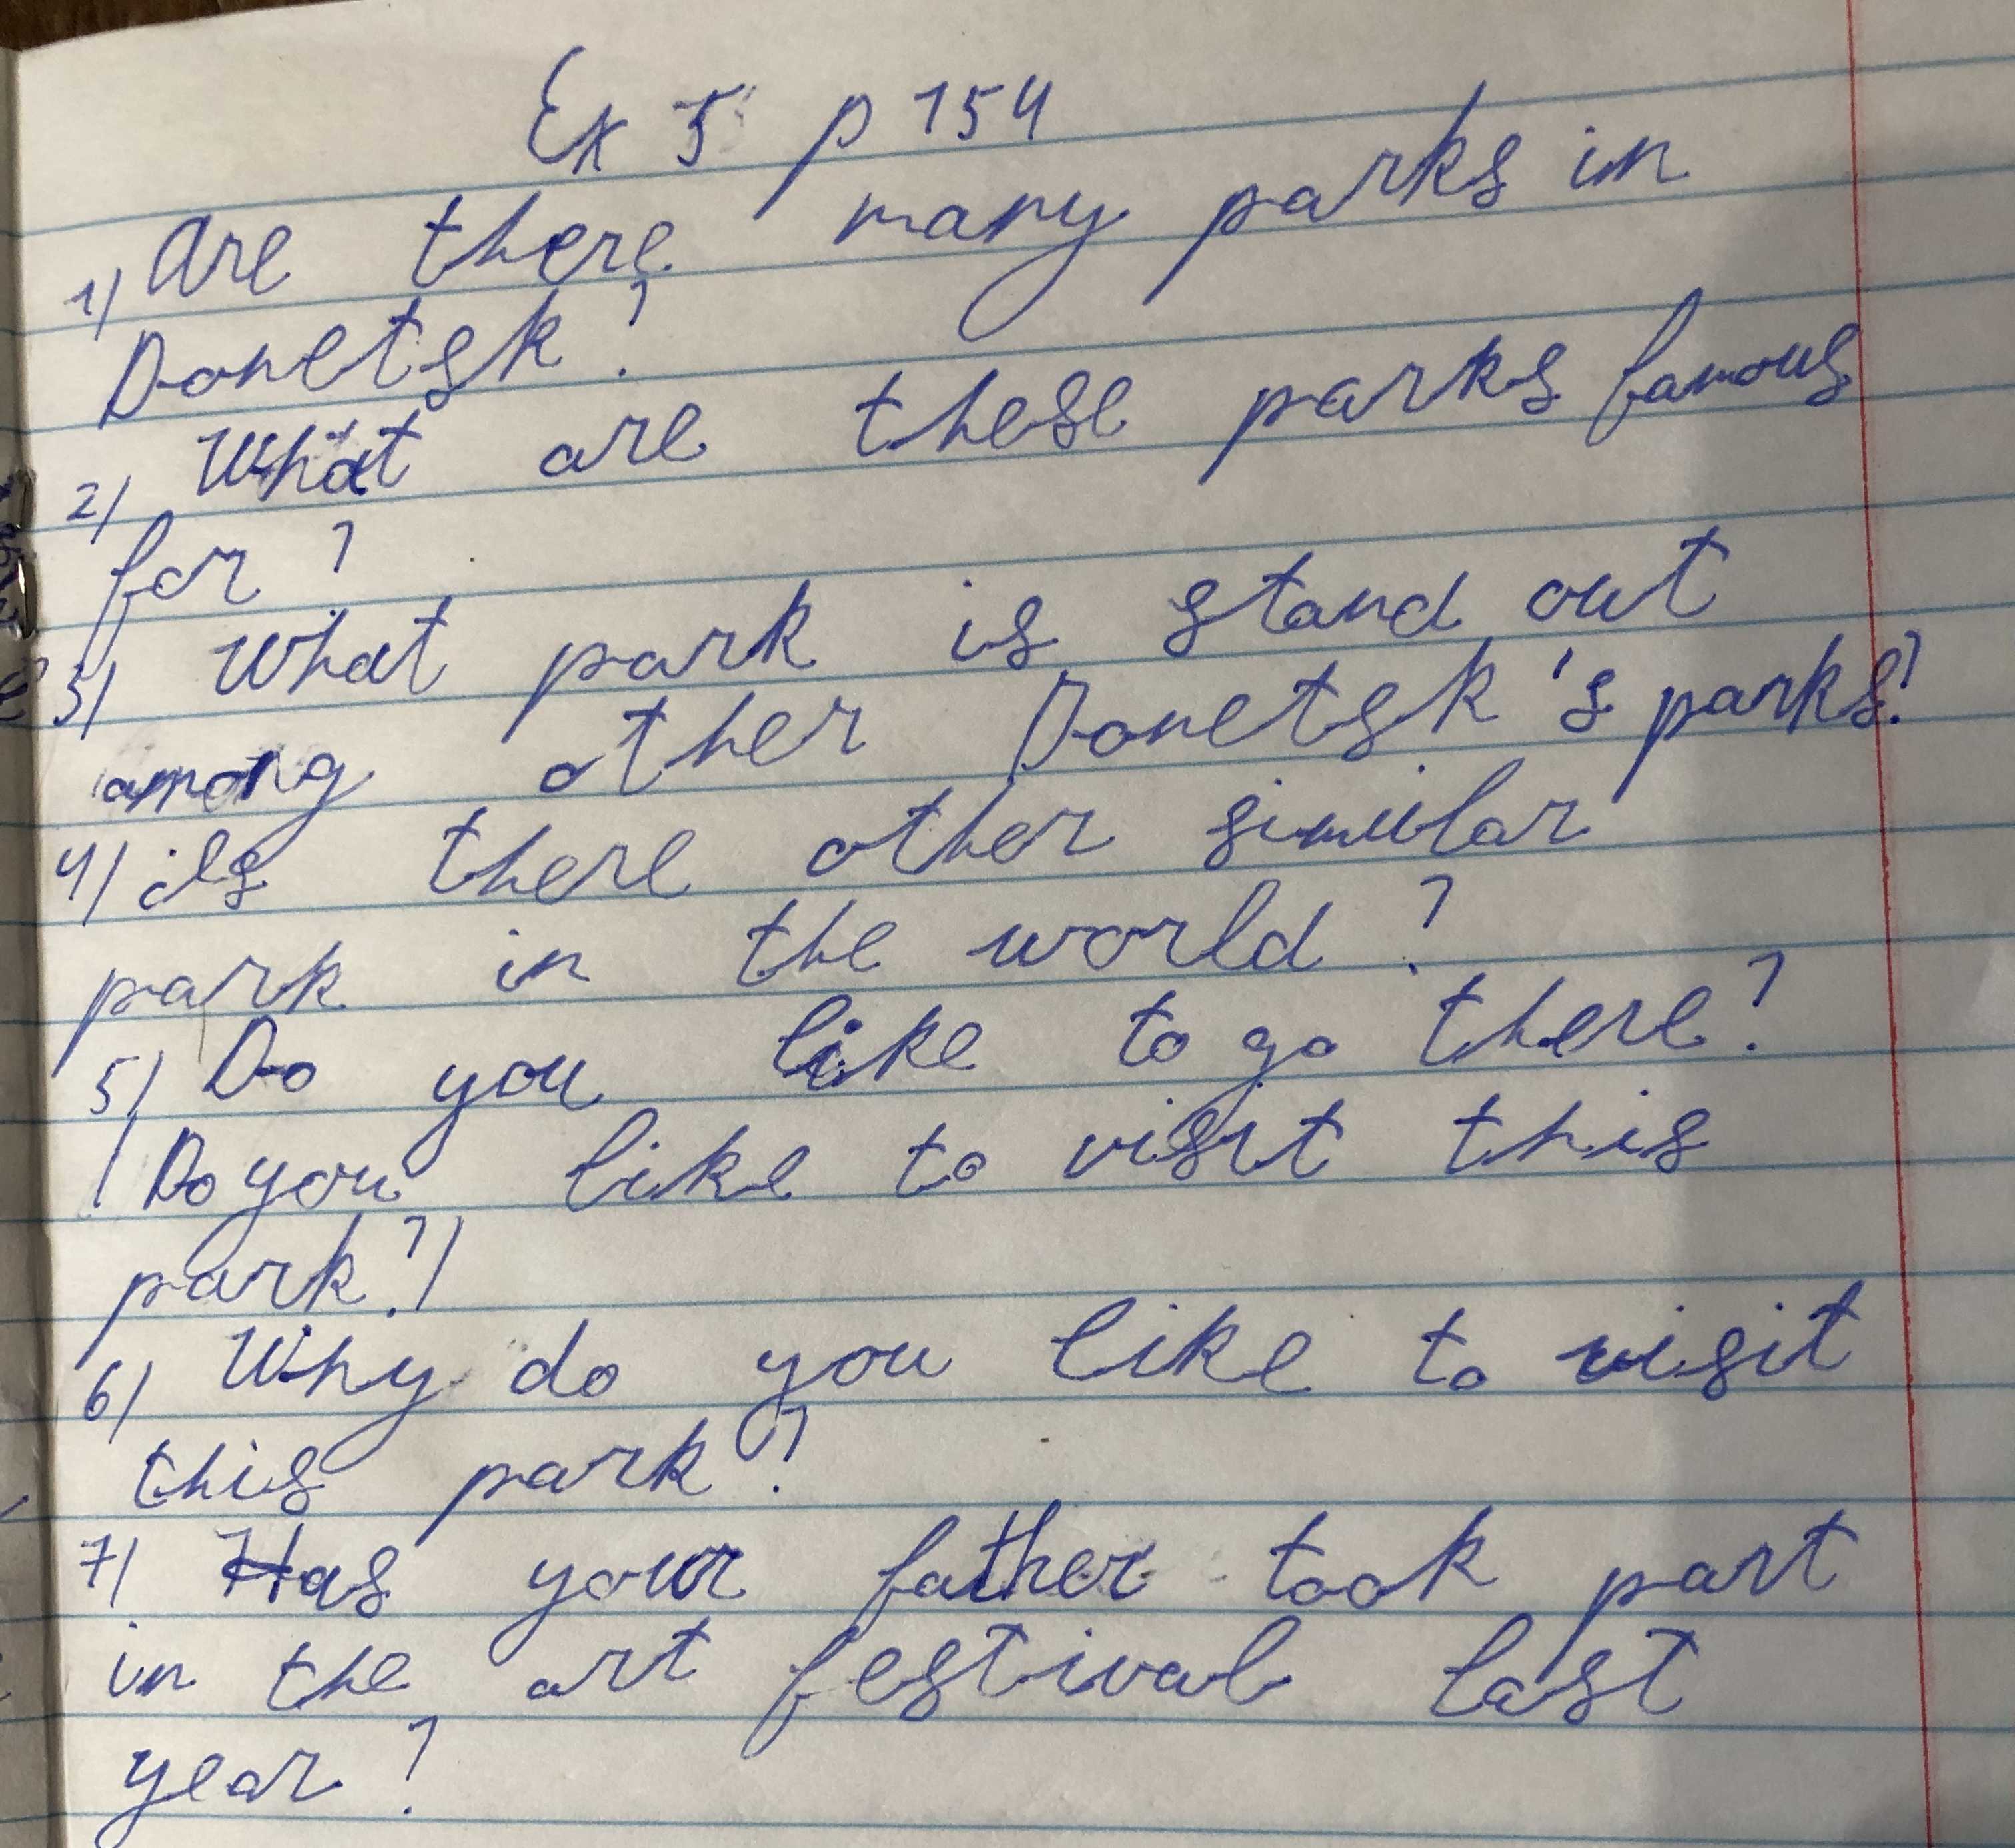 Ex 5 p 154
1) Are there many parks in
Donetsk?
2) What are these parks famous
for?
3) What park is stand out
among other Donetsk's parks?
4) Is there other similar
park in the world?
5) Do you like to go there?
(Do you like to visit this
park?)
6) Why do you like to visit
this park?
7) Has your father took part
in the art festival last
year?